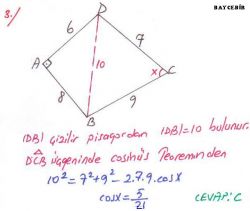 BAYCEBİR
3./
D
6
7
A
10
x
C
8
9
B
|DB| çizilir pisagordan |DB|=10 bulunur.
DCB üçgeninde cosinüs Teoreminden
10²=7²+9²-2.7.9.cosx
cosx=5/21
CEVAP:C